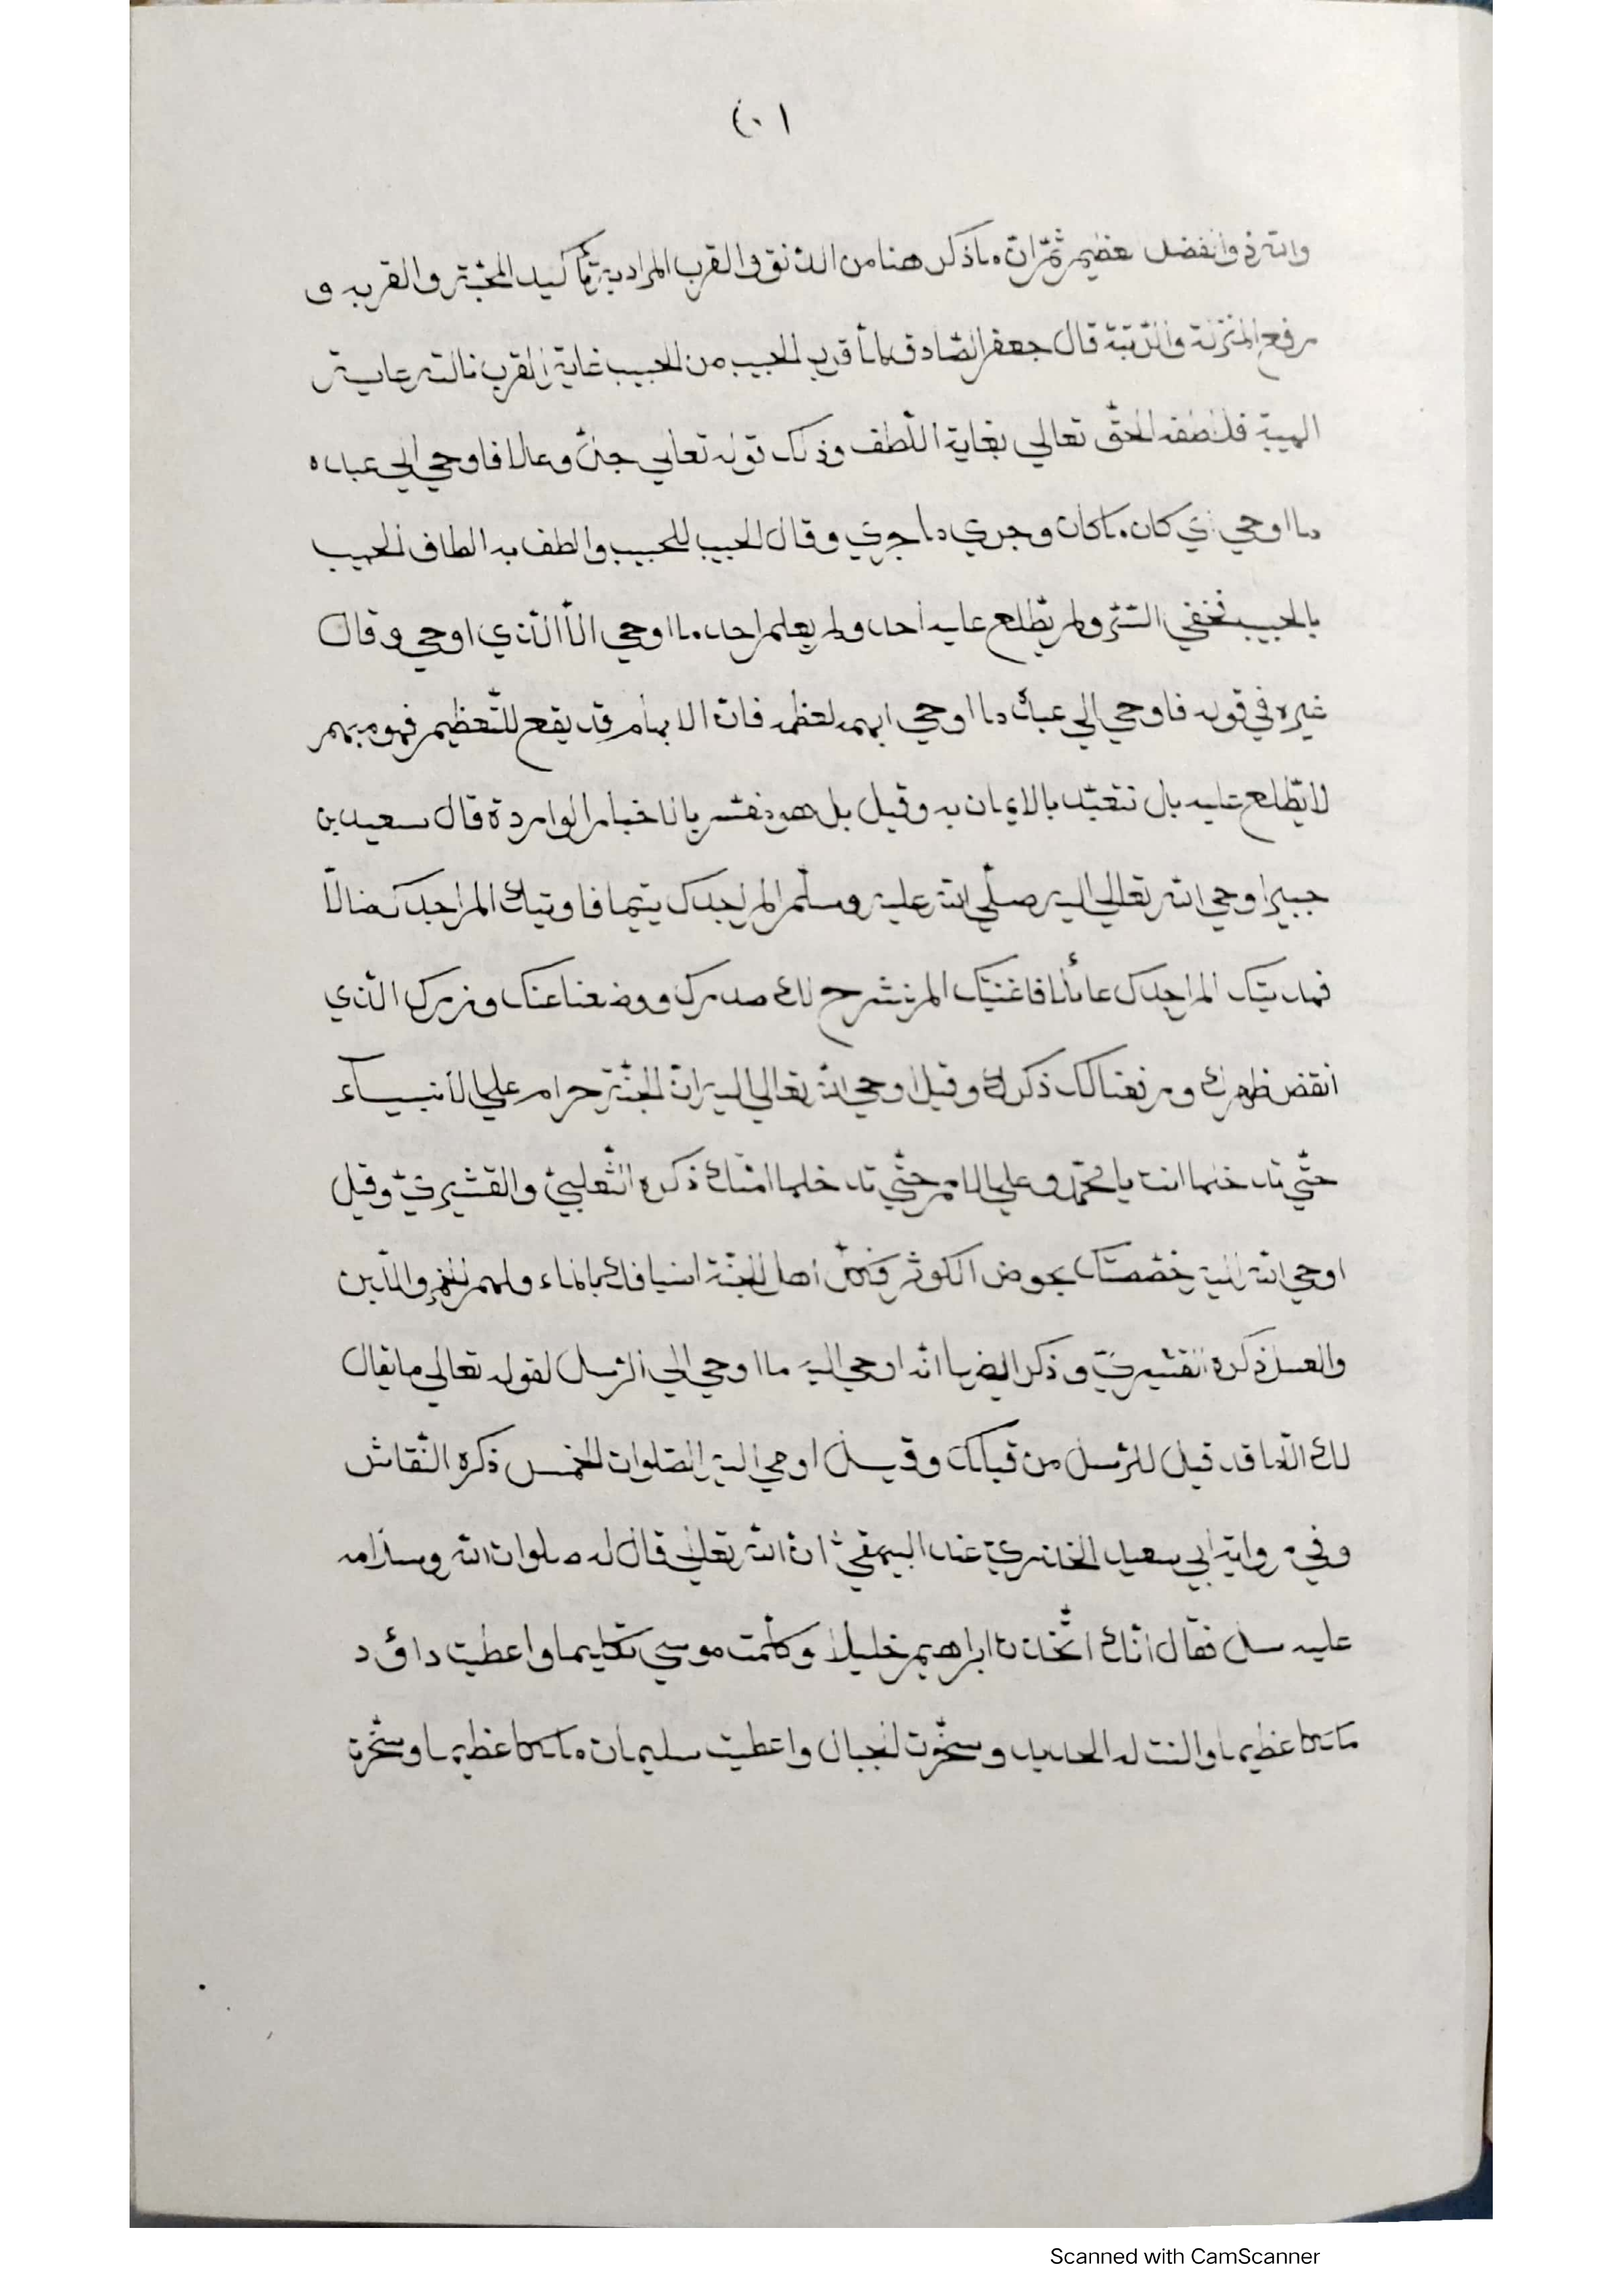 ١٠٢
والله ذو الفضل العظيم ثمّ انّ ما ذكر هنا من الدّنوّ والقرب المراد به تأكيد المحبّة والقربه و
رفع المنزلة والرّتبة قال جعفر الصّادق لمّا قرب الحبيب من الحبيب غاية القرب نالته غاية
الهيبة فلاطفه الحقّ تعالي بغاية اللّطف وذلك قوله تعالي جلّ وعلا فاوحي الي عبده
ما اوحي اي كان ما كان وجري ما جري وقال الحبيب للحبيب والطف به الطاف الحبيب
بالحبيب فخفي السّرّ ولم يطّلع عليه احد ولم يعلم احد ما اوحي الّا الّذي اوحي وقال
غيره في قوله فاوحي الي عبده ما اوحي ابهمه لعظمه فانّ الابهام قد يقع للتّعظيم فهو مبهم
لا يطّلع عليه بل نتعبّد بالايمان به وقيل بل هو مفسّر بالاخبار الواردة قال سعيد بن
جبير اوحي الله تعالي اليه صلّي الله عليه وسلّم الم اجدك يتيما فاويتك الم اجدك ضالّا
فهديتك الم اجدك عائلا فاغنيتك الم نشرح لك صدرك ووضعنا عنك وزرك الّذي
انقض ظهرك ورفعنا لك ذكرك وقيل اوحي الله تعالي اليه انّ الجنّة حرام علي الأنبيآء
حتّي تدخلها انت يا محمّد وعلي الامم حتّي تدخلها امّتك ذكره الثّعلبيّ والقشيريّ وقيل
اوحي الله اليه خصّصتك بحوض الكوثر فكلّ اهل الجنّة اضيافك بالماء ولهم الخمر واللّبن
والعسل ذكره القشيريّ وذكر ايضا انّه اوحي اليه ما اوحي الي الرّسل لقوله تعالي ما يقال
لك الّا ما قد قيل للرّسل من قبلك وقيل اوحي اليه الصّلوات الخمس ذكره النّقاش
وفي رواية ابي سعيد الخدريّ عند البيهقيّ انّ الله تعالي قال له صلوات الله وسلامه
عليه سل فقال انّك اتّخذت ابراهيم خليلا وكلّمت موسي تكليما واعطيت داؤد
ملكا عظيما والنت له الحديد وسخّرت الجبال واعطيت سليمان ملكا عظيما وسخّرت
Scanned with CamScanner